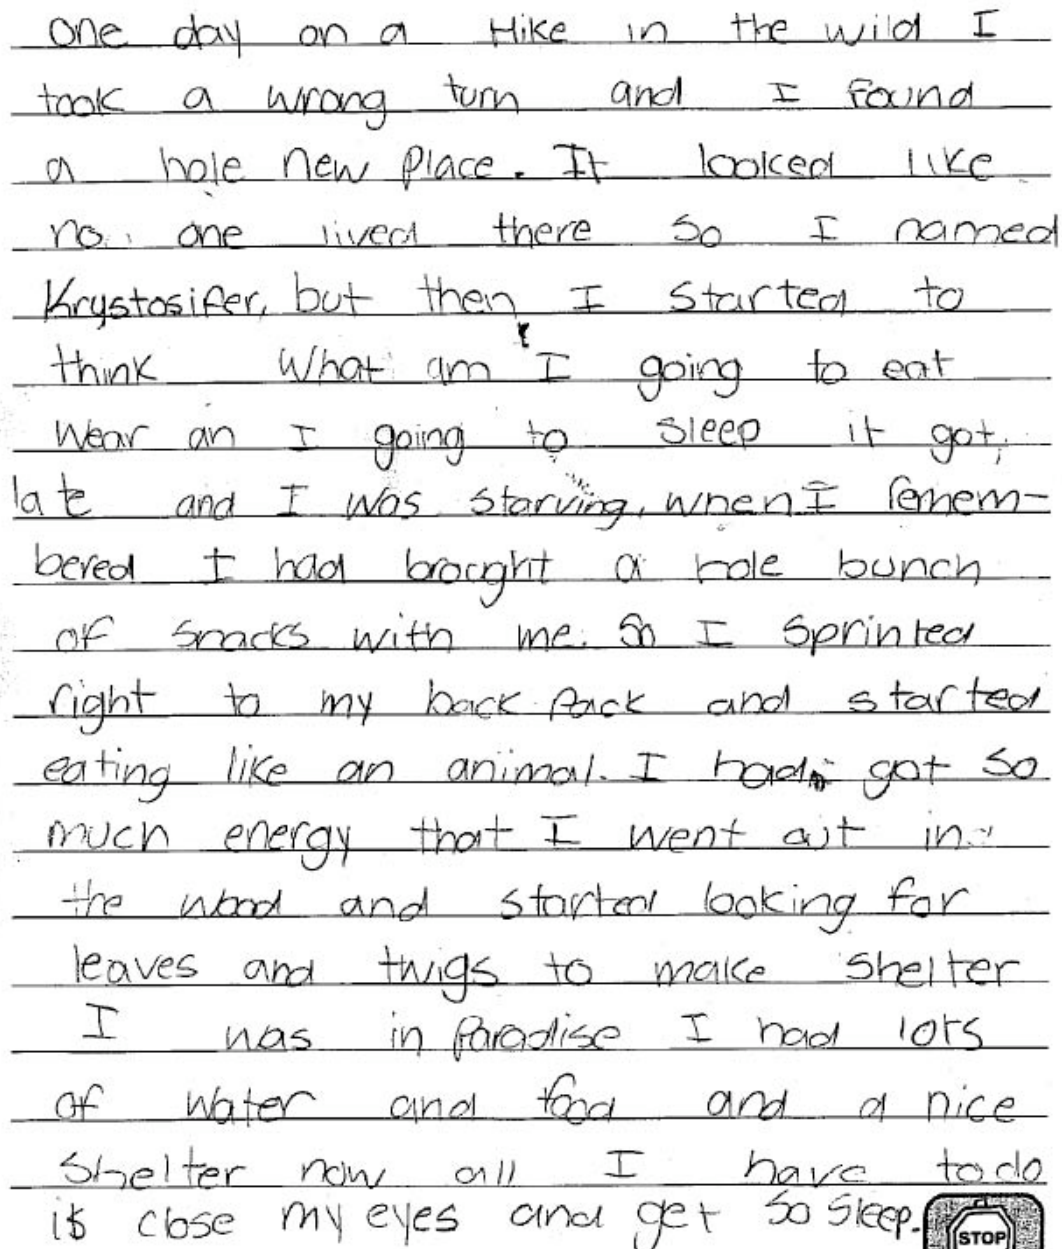 one day on a Hike in the wild I
took a wrong turn and I found
a hole new place. It looked like
no one lived there so I named
Krystosifer, but then I started to
think What am I going to eat
Wear an I going to sleep it got
late and I was starving, when I remem-
bered I had brought a hole bunch
of snacks with me. So I sprinted
right to my back pack and started
eating like an animal. I had got so
much energy that I went out in
the wood and started looking for
leaves and twigs to make shelter
I was in paradise I had lots
of water and food and a nice
shelter now all I have to do
is close my eyes and get so sleep.
STOP